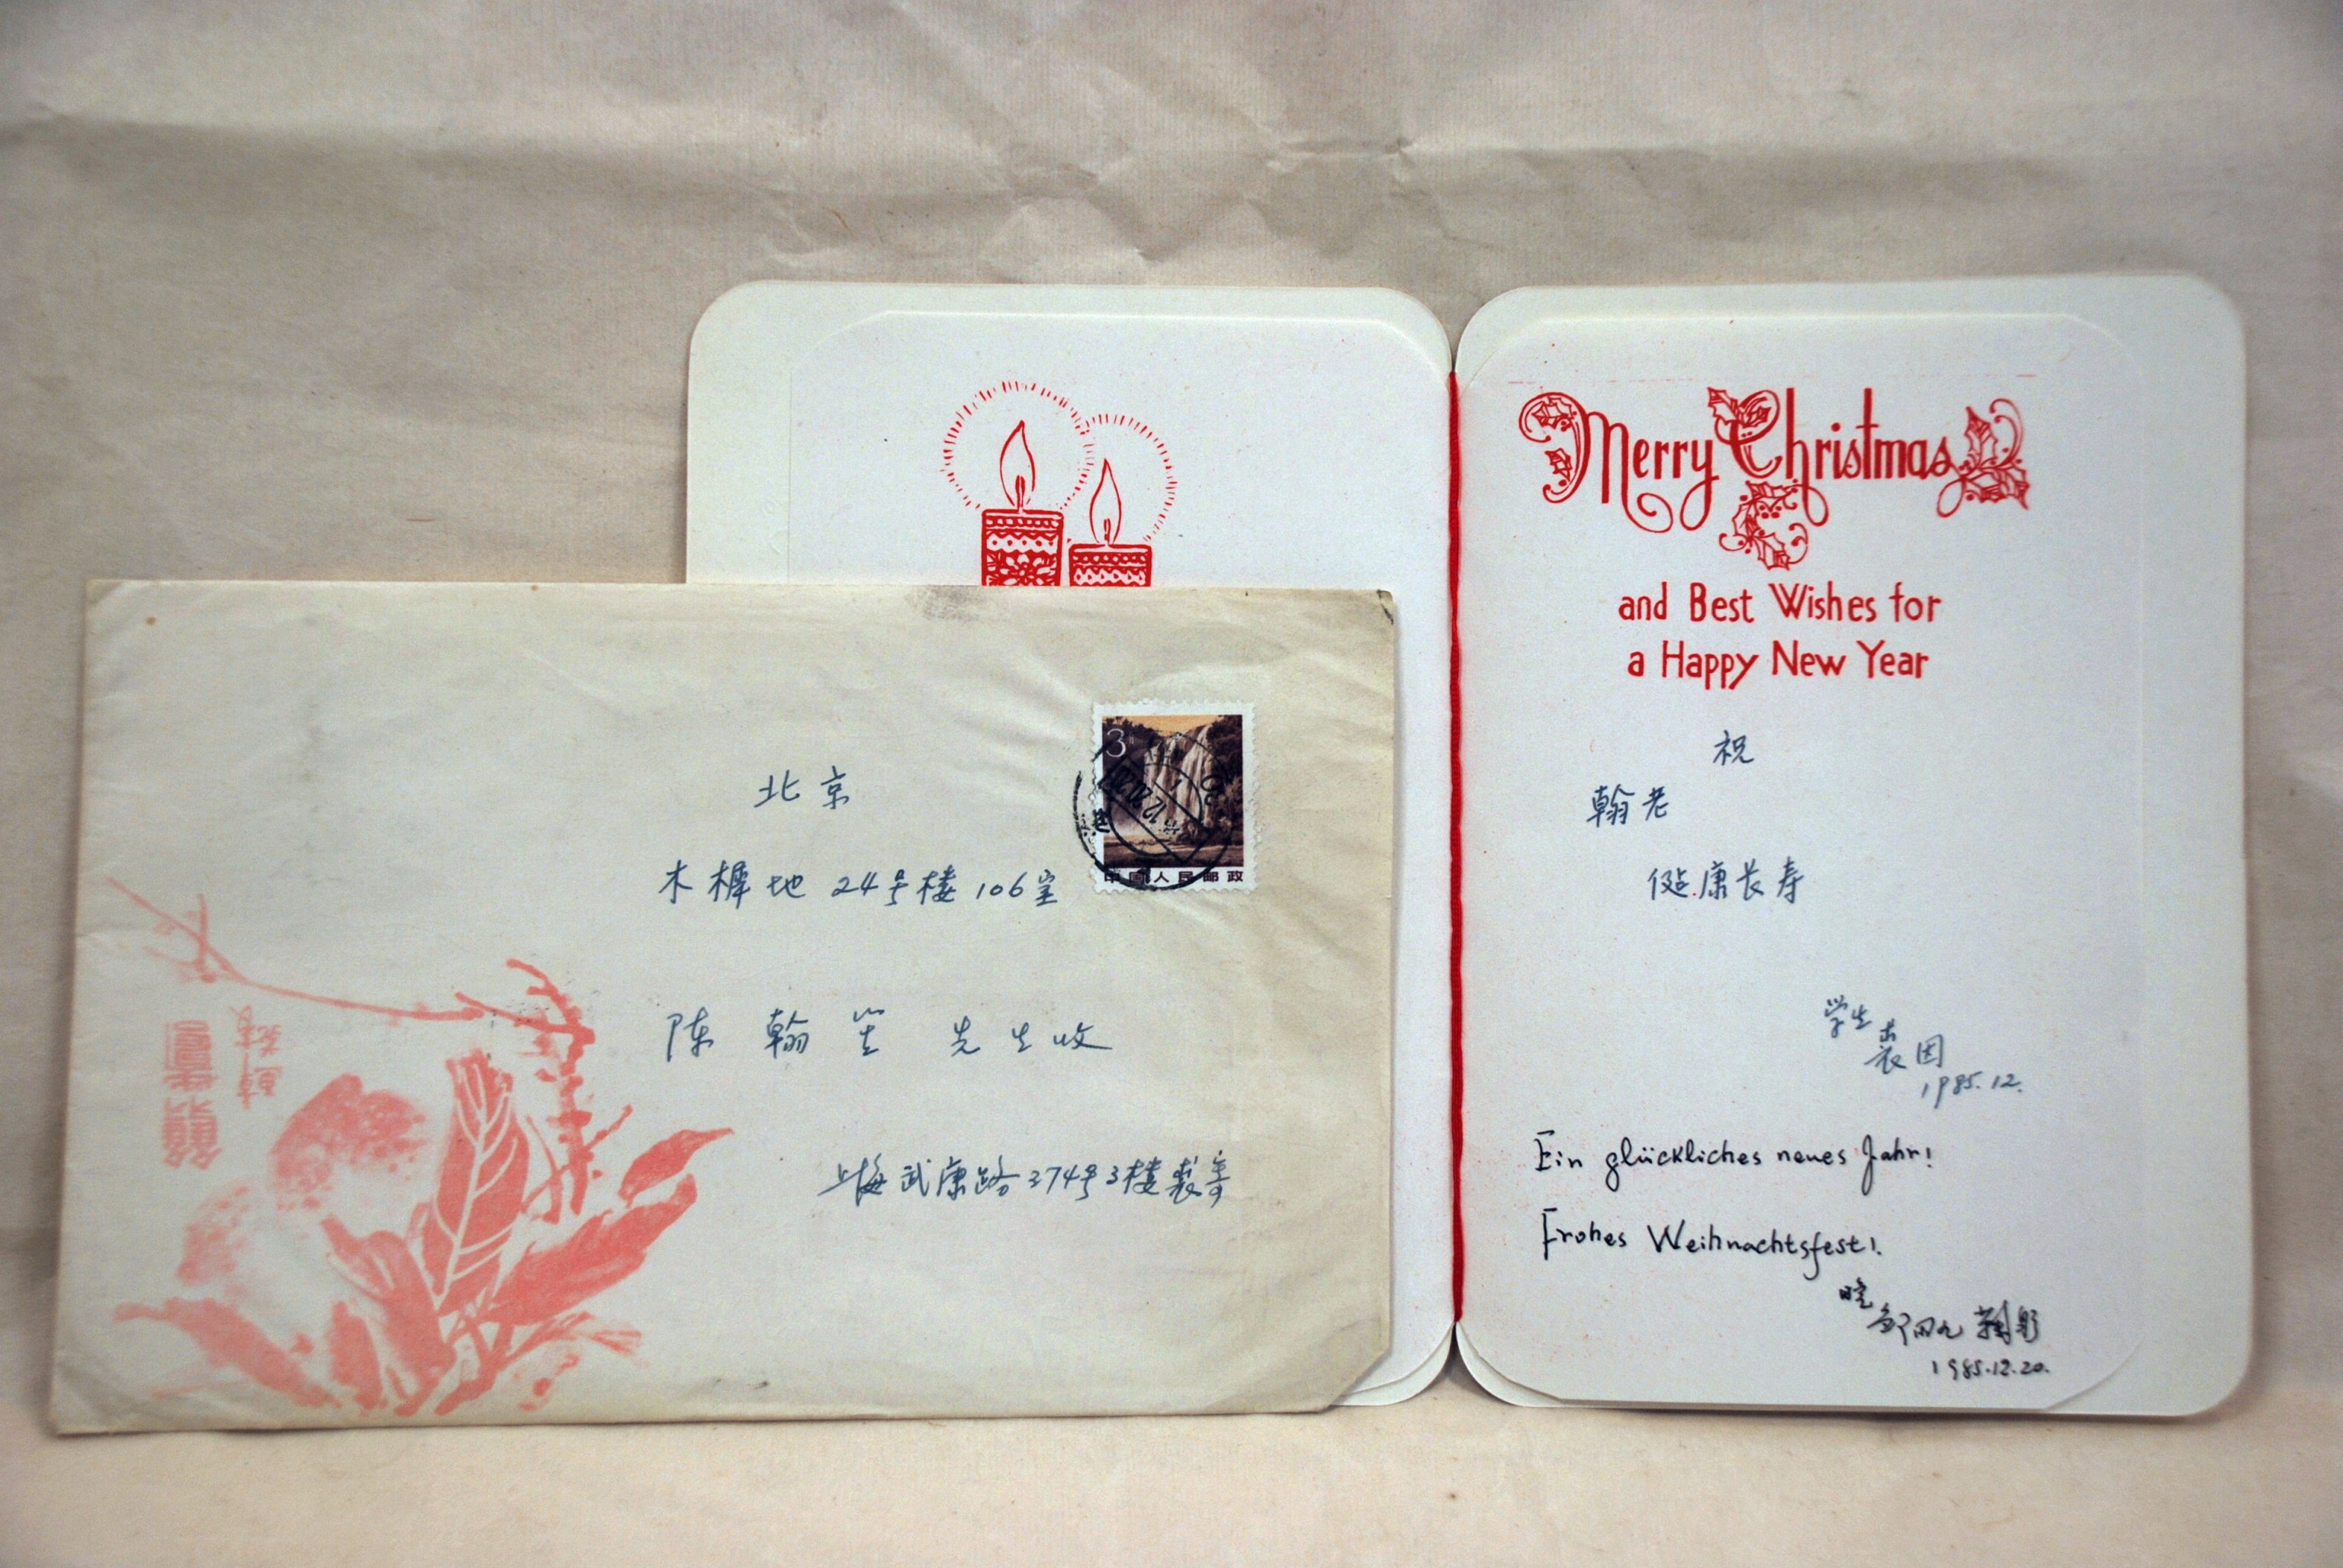 北京
木樨地 24号楼 106室
陈 翰笙 先生收
上海武康路374号3楼裘寄
3
中国人民邮政
Merry Christmas
and Best Wishes for
a Happy New Year
祝
翰老
健康长寿
学生
裘因
1985.12.
Ein glückliches neues Jahr!
Frohes Weihnachtsfest!
1985.12.20.